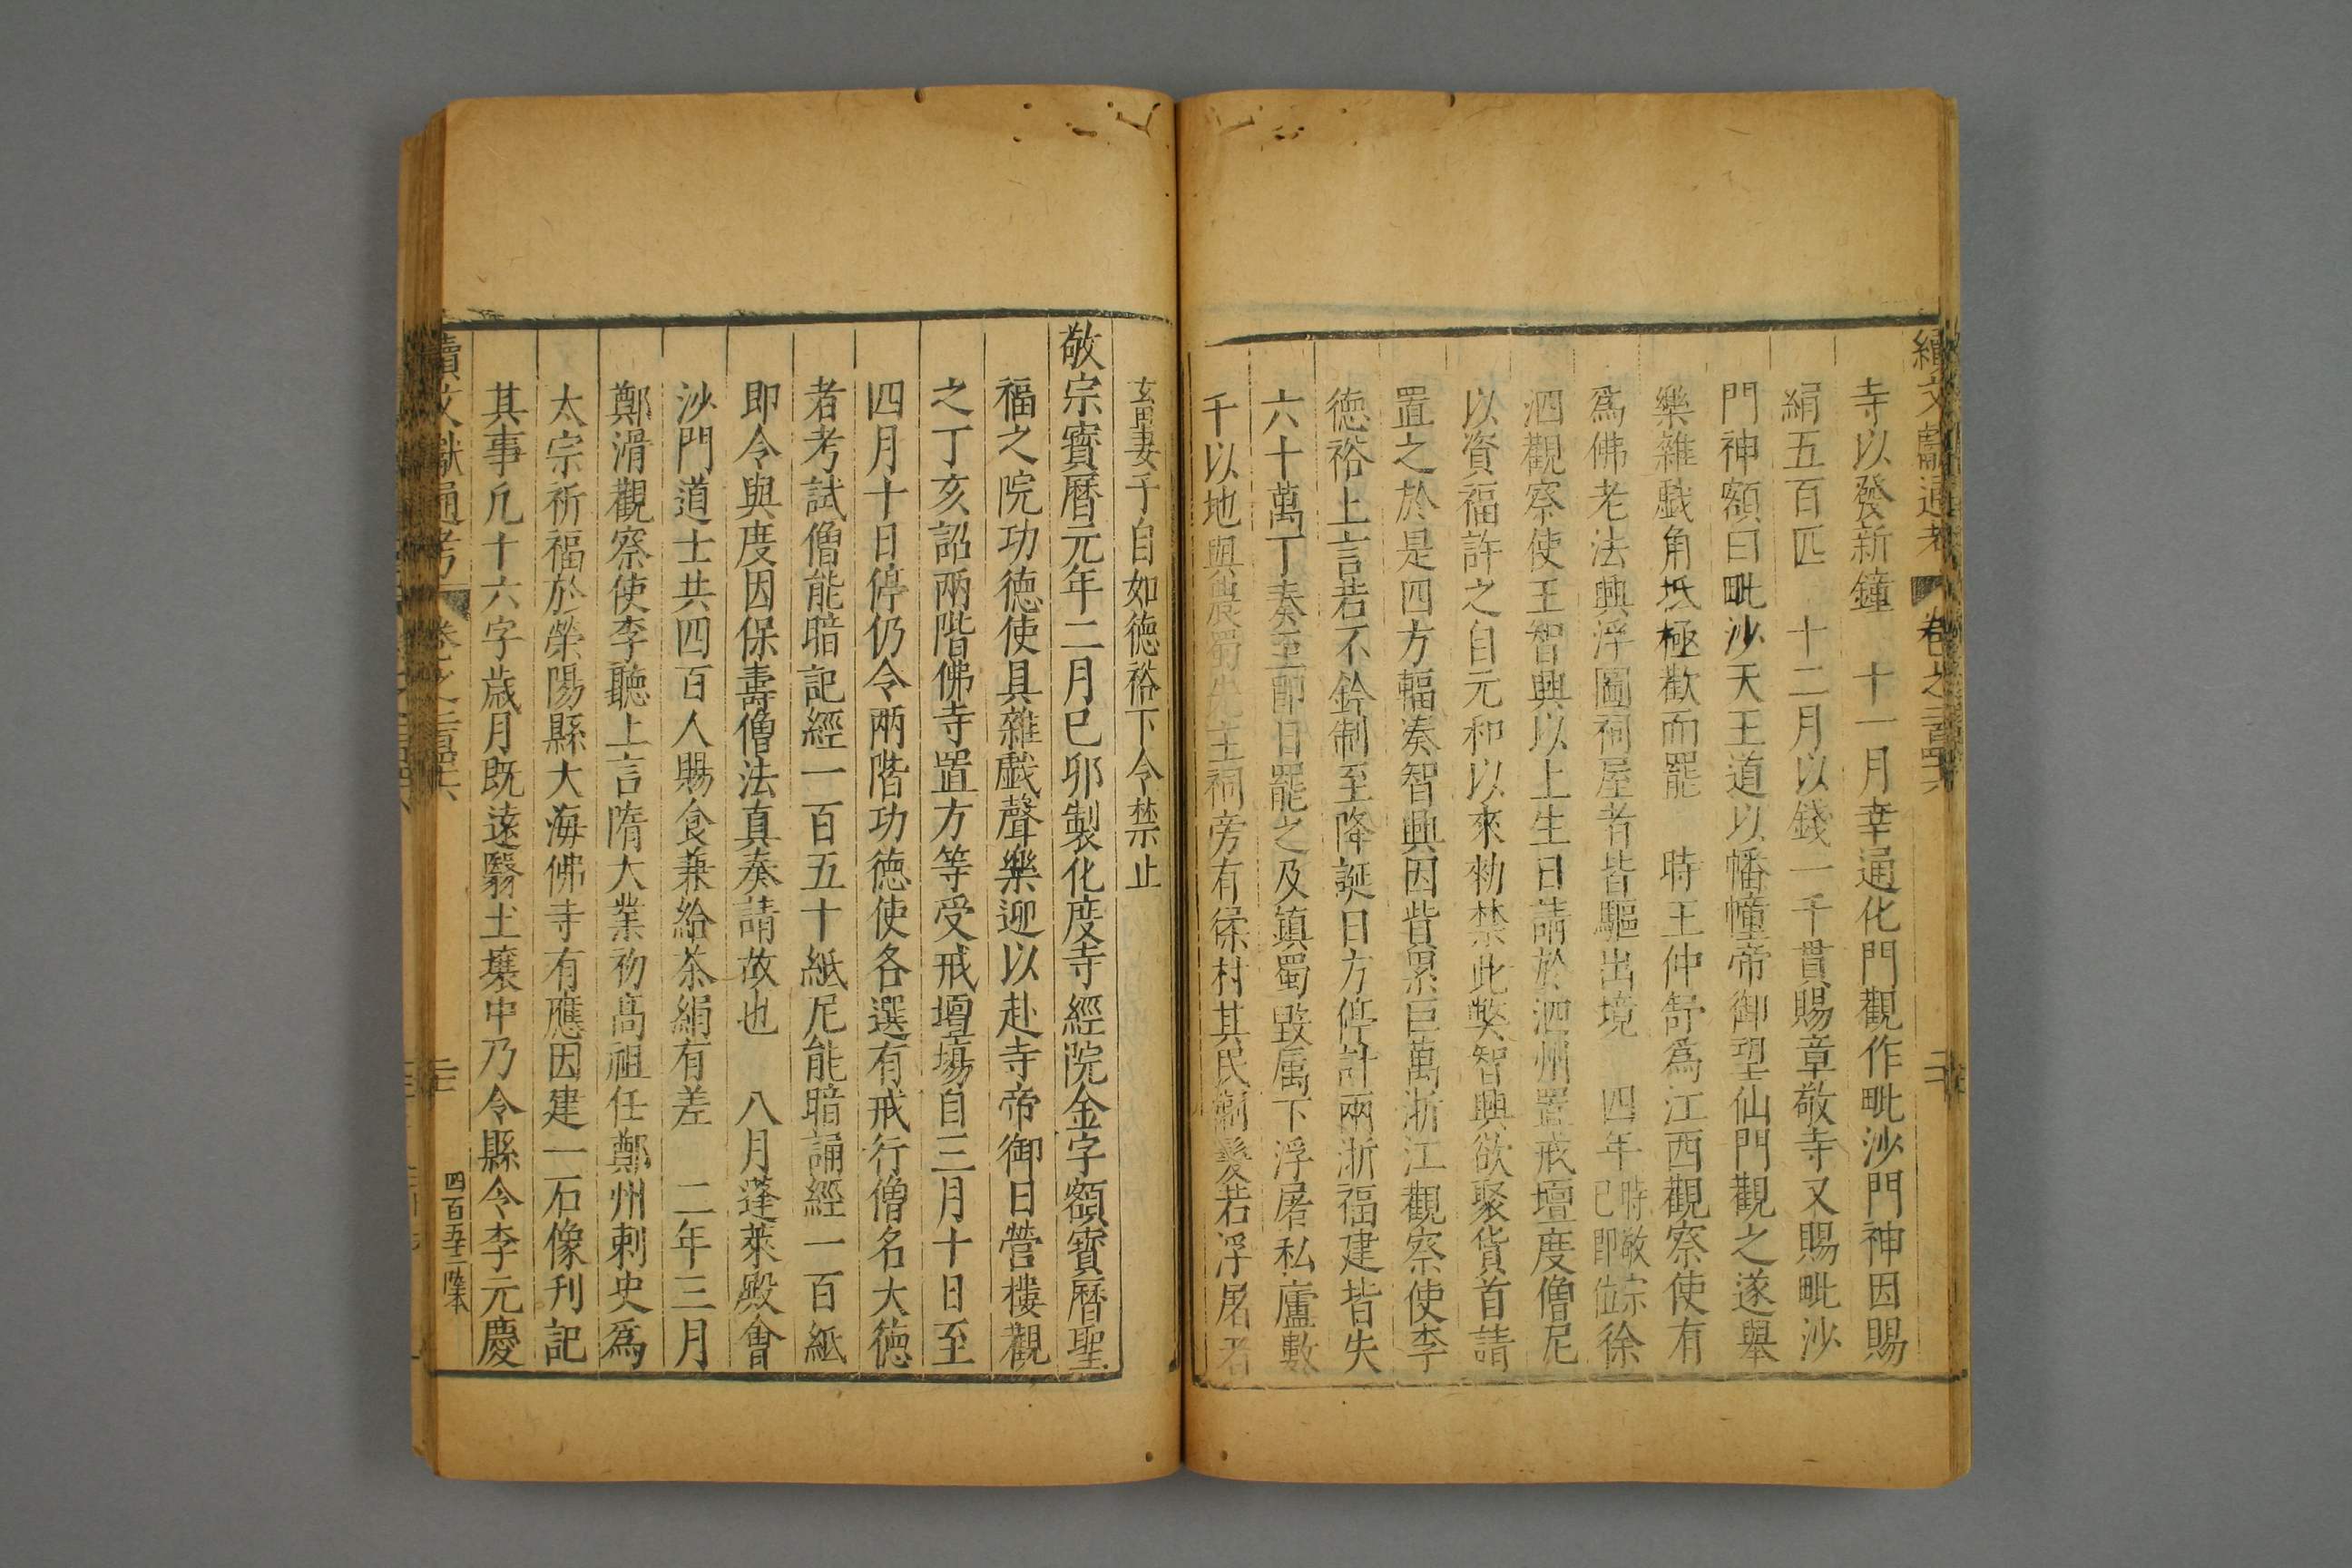 續文獻通考 卷之二百四十六 二十
寺以發新鐘　十一月幸通化門觀作毗沙門神因賜
絹五百匹　十二月以錢一千貫賜章敬寺又賜毗沙
門神額曰毗沙天王道以幡幢帝御望仙門觀之遂舉
樂雜戲角坻極歡而罷　時王仲舒為江西觀察使有
為佛老法興浮圖祠屋者皆驅出境　四年時敬宗已即位徐
泗觀察使王智興以上生日請於泗州置戒壇度僧尼
以資福許之自元和以來勑禁此弊智興欲聚貨首請
置之於是四方輻湊智興因貲累巨萬浙江觀察使李
德裕上言若不鈐制至降誕日方停計兩浙福建皆失
六十萬丁奏至即日罷之及鎮蜀毀屬下浮屠私廬數
千以地與農蜀先主祠旁有猱村其民剔髮若浮屠者
玄畜妻子自如德裕下令禁止
敬宗寶曆元年二月巳卯製化度寺經院金字額寶曆聖
福之院功德使具雜戲聲樂迎以赴寺帝御日營樓觀
之丁亥詔兩階佛寺置方等受戒壇場自三月十日至
四月十日停仍令兩階功德使各選有戒行僧名大德
者考試僧能暗記經一百五十紙尼能暗誦經一百紙
即令與度因保壽僧法真奏請故也　八月蓬萊殿會
沙門道士共四百人賜食兼給茶絹有差　二年三月
鄭滑觀察使李聽上言隋大業初高祖任鄭州刺史為
太宗祈福於滎陽縣大海佛寺有應因建一石像刋記
其事凡十六字歲月既遠翳土壤中乃令縣令李元慶
續文獻通考 卷之二百四十六